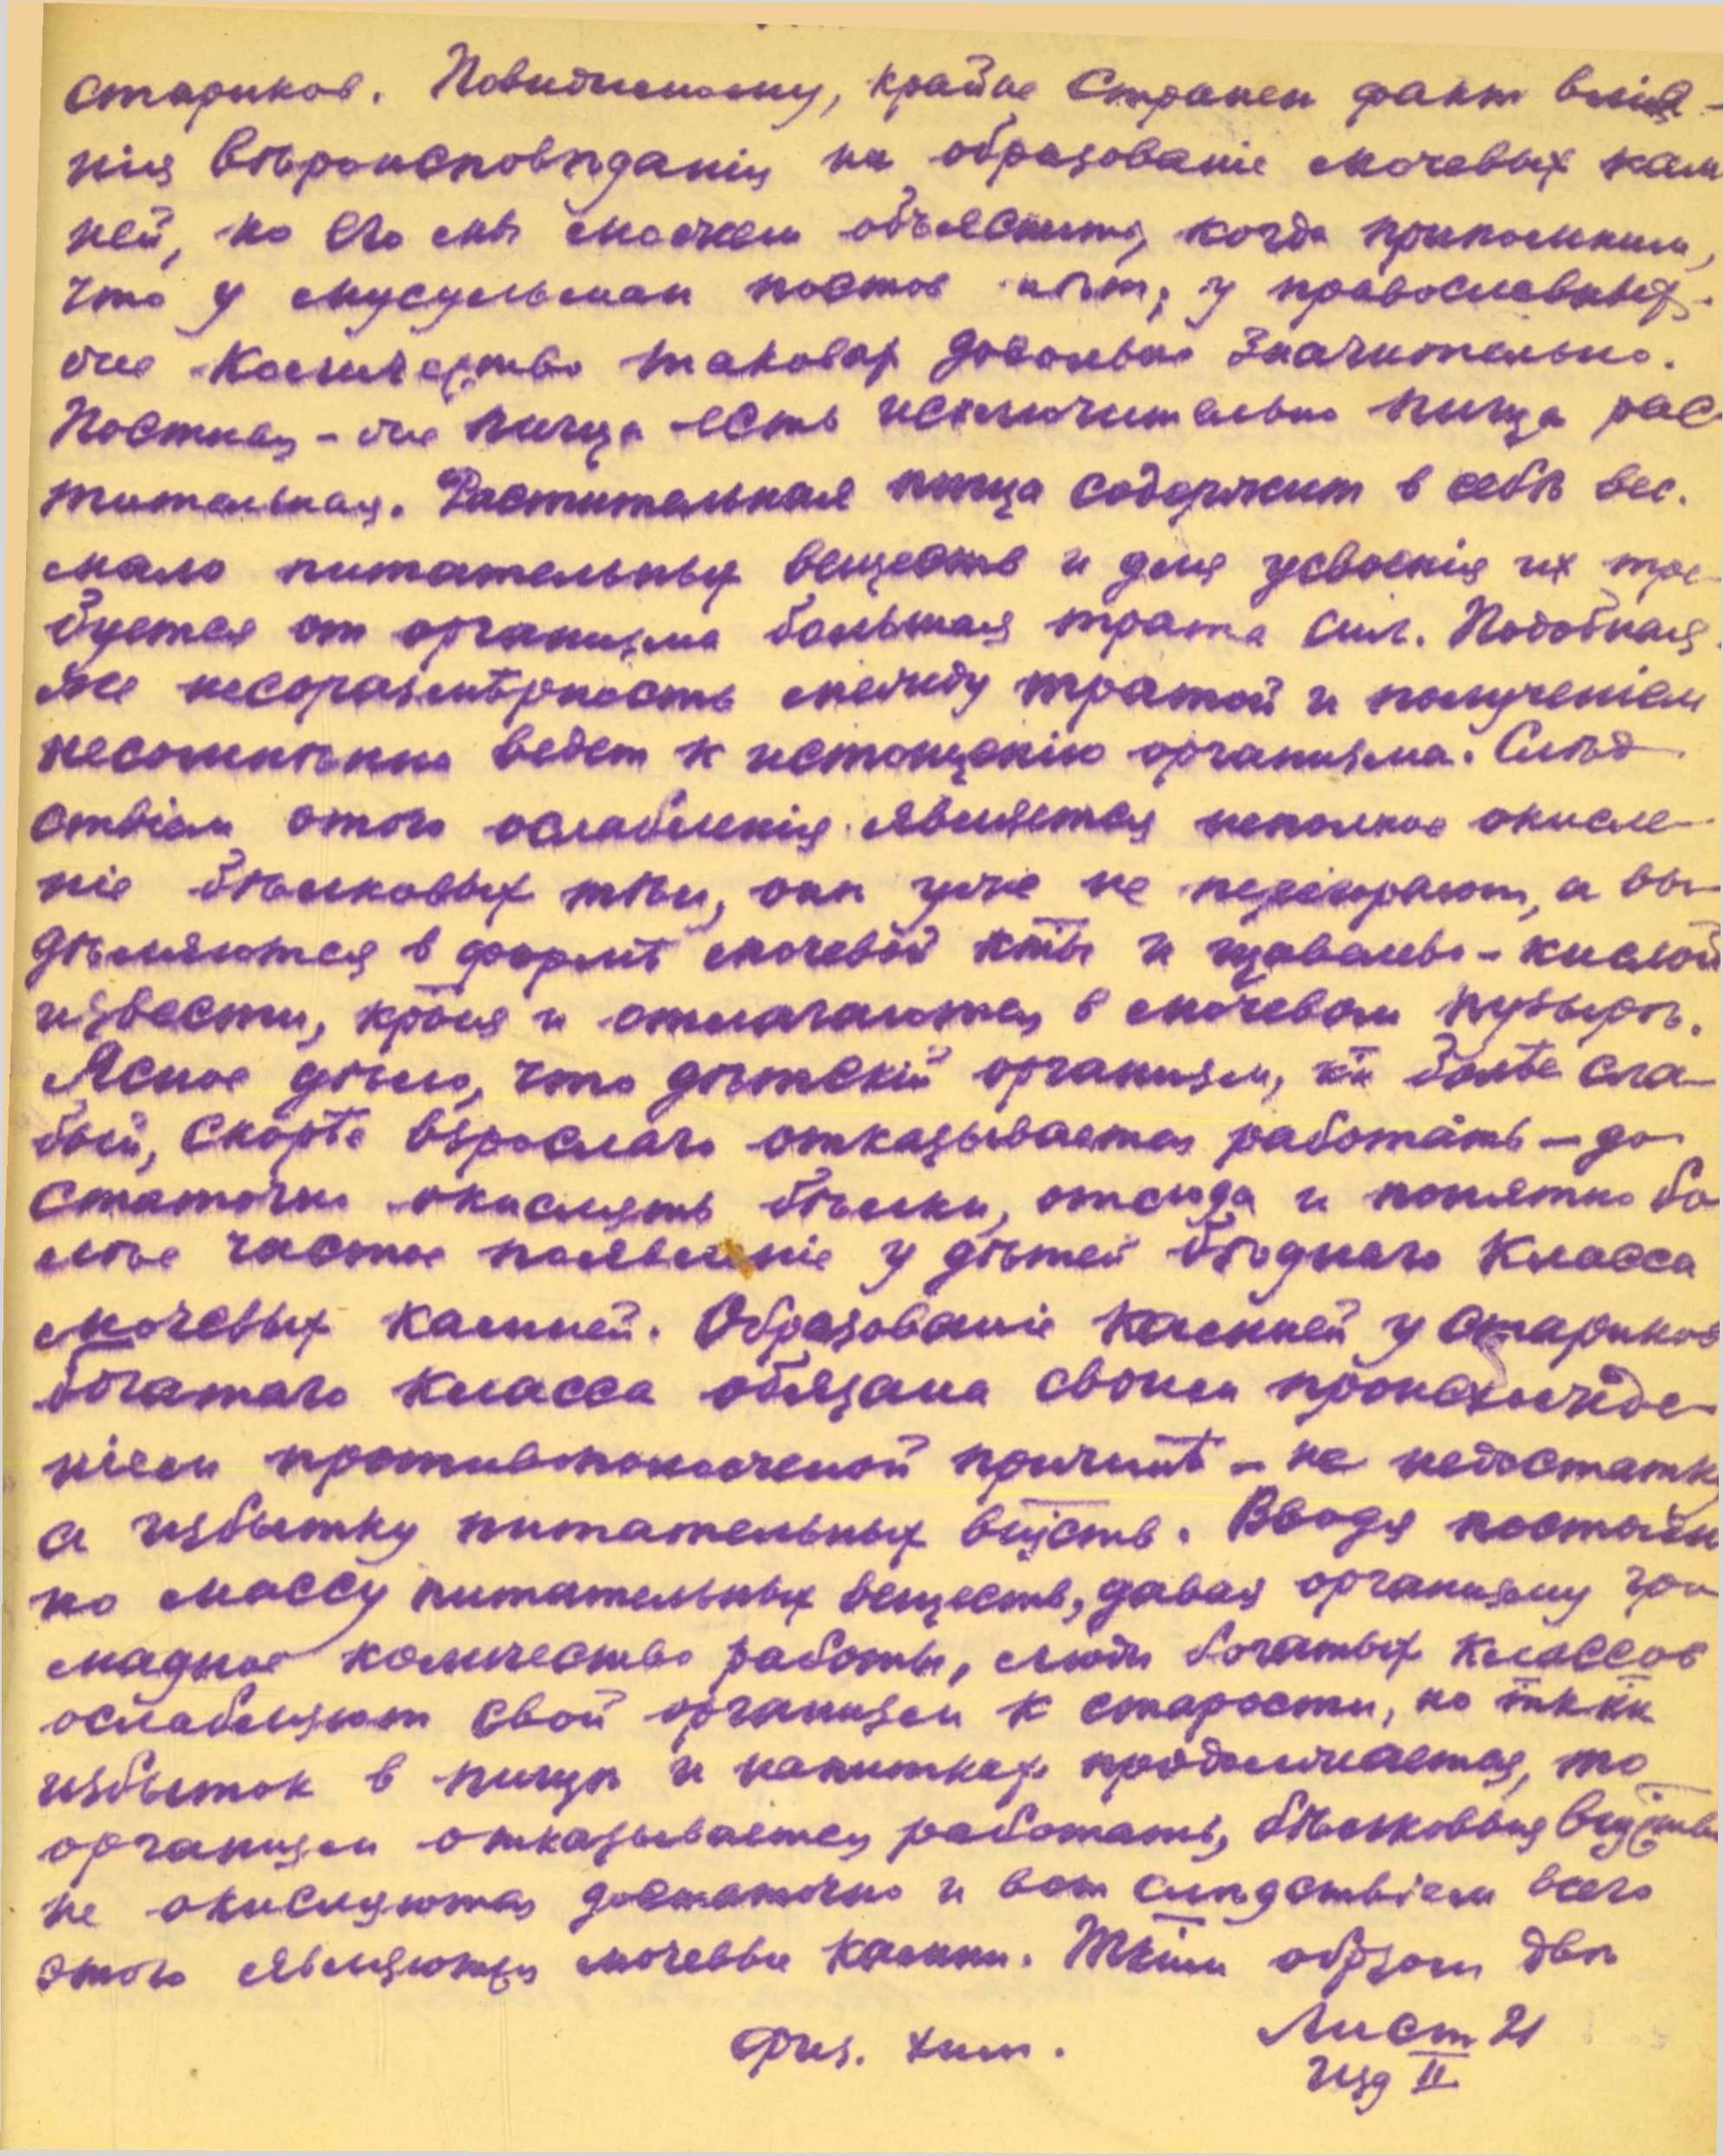 стариков. Повидимому, крайне странен факт влія-
нія вѣроисповѣданія на образованіе мочевых кам
ней, но его мы можем объяснить, когда припомним,
что у мусульман постов нѣт; у православных-
же количество таковых довольно значительно.
Постная-же пища есть исключительно пища рас-
тительная. Растительная пища содержит в себѣ вес.
мало питательных веществ и для усвоенія их тре-
буется от организма большая трата сил. Подобная-
же несоразмѣрность между тратой и полученіем
несомнѣнно ведет к истощенію организма. Слѣд-
ствіем этого ослабленія является неполное окисле-
ніе бѣлковых тѣл, они уже не перегорают, а вы-
дѣляются в формѣ мочевой к̅ты и щавелево-кислой
извести, кроія и отлагаются в мочевом пузырѣ.
Ясное дѣло, что дѣтскій организм, к̅к болѣе сла-
бый, скорѣе взрослаго отказывается работать – до-
статочно окислять бѣлки, отсюда и понятно бо
лѣе частое появленіе у дѣтей бѣднаго класса
мочевых камней. Образованіе камней у стариков
богатаго класса обязана своим происхожде-
ніем противоположной причинѣ – не недостатку,
а избытку питательных вщ̅ств. Вводя постоян
но массу питательных веществ, давая организму гро-
мадное количество работы, люди богатых классов
ослабляют свой организм к старости, но т̅к к̅к
избыток в пищѣ и напитках продолжается, то
организм отказывается работать, бѣлковыя вещ̅тва
не окисляются достаточно и вот слѣдствіем всего
этого являются мочевые камни. Т̅кім обрзом двѣ
Физ. хим. Лист 21
Изд II